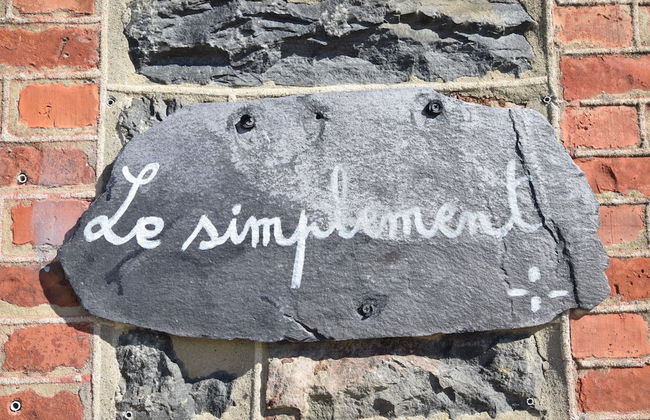 Le simplement